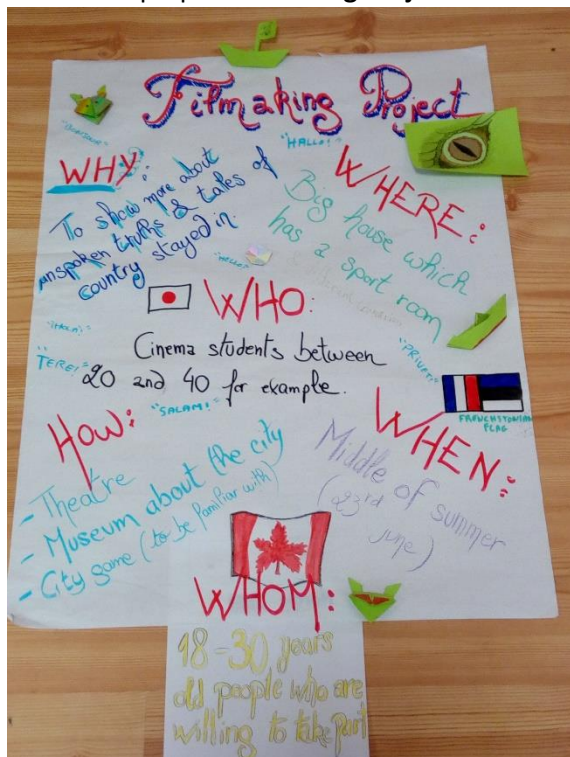 Filmaking Project
"HALLO!"
WHY:
To show more about
unspoken truths & tales of
country stayed in
WHERE:
Big house which
has a sport room
"HELLO"
WHO:
Cinema students between
20 and 40 for example.
"TERE!"
"PRIVET"
"SALAM!"
FRENCHSTONIAN
FLAG
How:
- Theatre
- Museum about the city
- City game (to be familiar with)
WHEN:
Middle of summer
(23rd
June)
WHOM:
18-30 years
old people who are
willing to take part